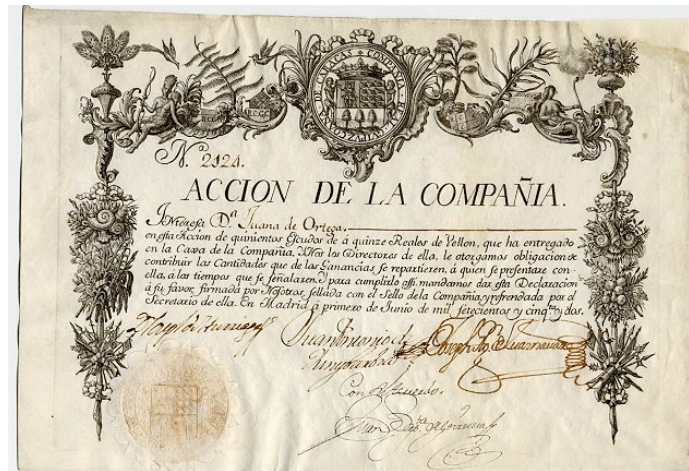 COMPAÑIA R.L GUIPUZCOANA DE CARACAS
R.C.G.C.
R.C.G.C.
N. 2124.
ACCION DE LA COMPAÑIA.
INteresa D.a Juana de Ortega.
en esta Accion de quinientos Escudos de â quinze Reales de Vellon, que ha entregado
en la Caxa de la Compañia. Y Nos los Directores de ella, le otorgamos obligacion de
contribuir las Cantidades que de las Ganancias se repartieren, â quien se presentare con
ella, â los tiempos que se señalaren. Y para cumplirlo assi, mandamos dar esta Declaracion
â su favor, firmada por Nosotros, sellada con el Sello de la Compañia, y refrendada por el
Secretario de ella. En Madrid â primero de Junio de mil setecientos y cinq.ta y dos.
Juan Antonio de
Con Acuerdo.
Juan